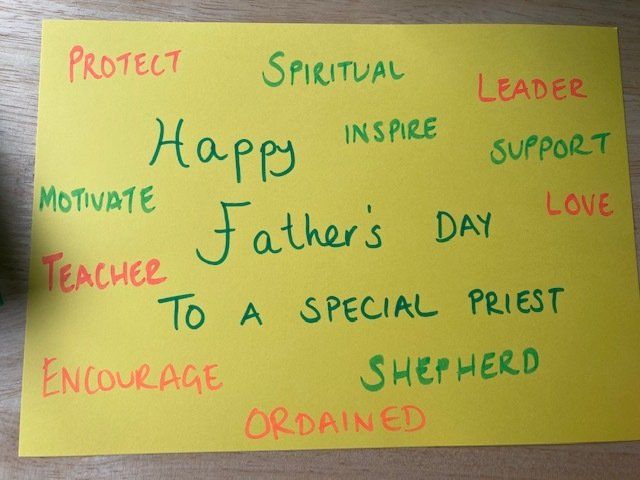 PROTECT
SPIRITUAL
LEADER
Happy
INSPIRE
SUPPORT
MOTIVATE
Father's DAY
LOVE
TEACHER
TO A SPECIAL PRIEST
ENCOURAGE
SHEPHERD
ORDAINED